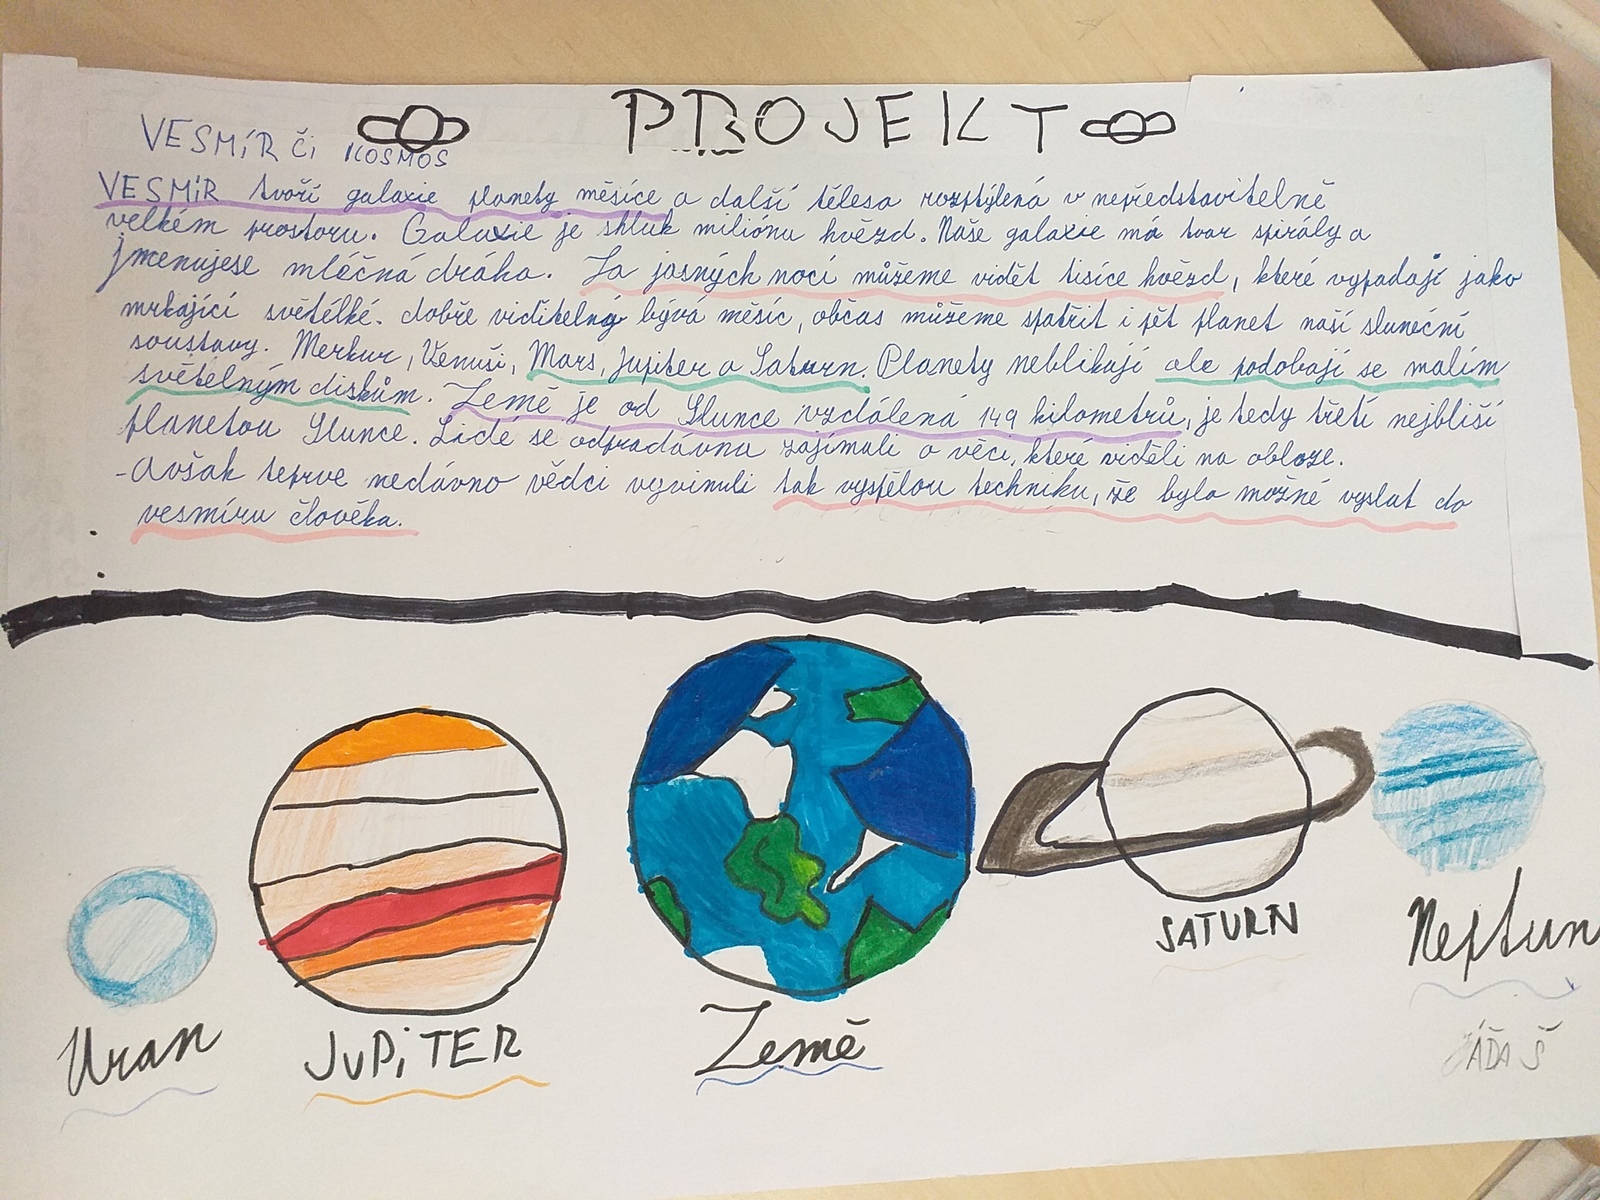 PROJEKT
VESMÍR či KOSMOS
VESMÍR tvoří galaxie planety měsíce a další tělesa rozptýlená v nepředstavitelně
velkém prostoru. Galaxie je shluk miliónu hvězd. Naše galaxie má tvar spirály a
jmenujese mléčná dráha. Za jasných nocí můžeme vidět tisíce hvězd, které vypadají jako
mrkající světélké. dobře viditelný bývá měsíc, občas můžeme spatřit i pět planet naší sluneční
soustavy. Merkur, Venuši, Mars, Jupiter a Saturn. Planety neblikají ale podobají se malím
světelným diskům. Země je od Slunce vzdálená 149 kilometrů, je tedy třetí nejbliší
planetou Slunce. Lidé se odpradávna zajímali o věci, které viděli na obloze.
-Avšak teprve nedávno vědci vyvinuli tak vyspělou techniku, že bylo možné vyslat do
vesmíru člověka.
Uran
JUPiTER
Země
SATURN
Neptun
ÁĎA Š